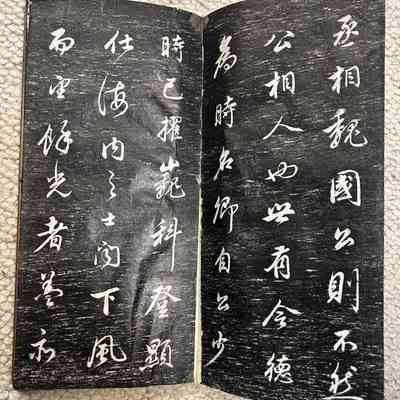 丞相魏國公則不然
公相人也世有令德
為時名卿自公少
時已擢巍科登顯
仕海內之士聞下風
而望餘光者蓋亦